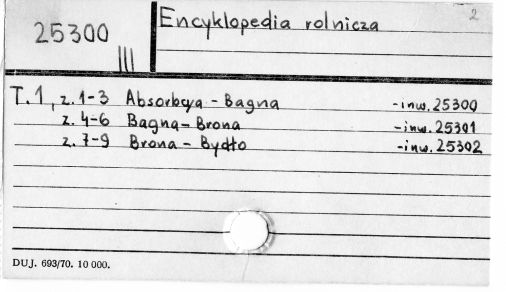 25300
III
Encyklopedia rolnicza
2
T.1, z. 1-3 Absorbcya - Bagna -inw. 25300
z. 4-6 Bagna - Brona -inw. 25301
z. 7-9 Brona - Bydło -inw. 25302
DUJ. 693/70. 10 000.